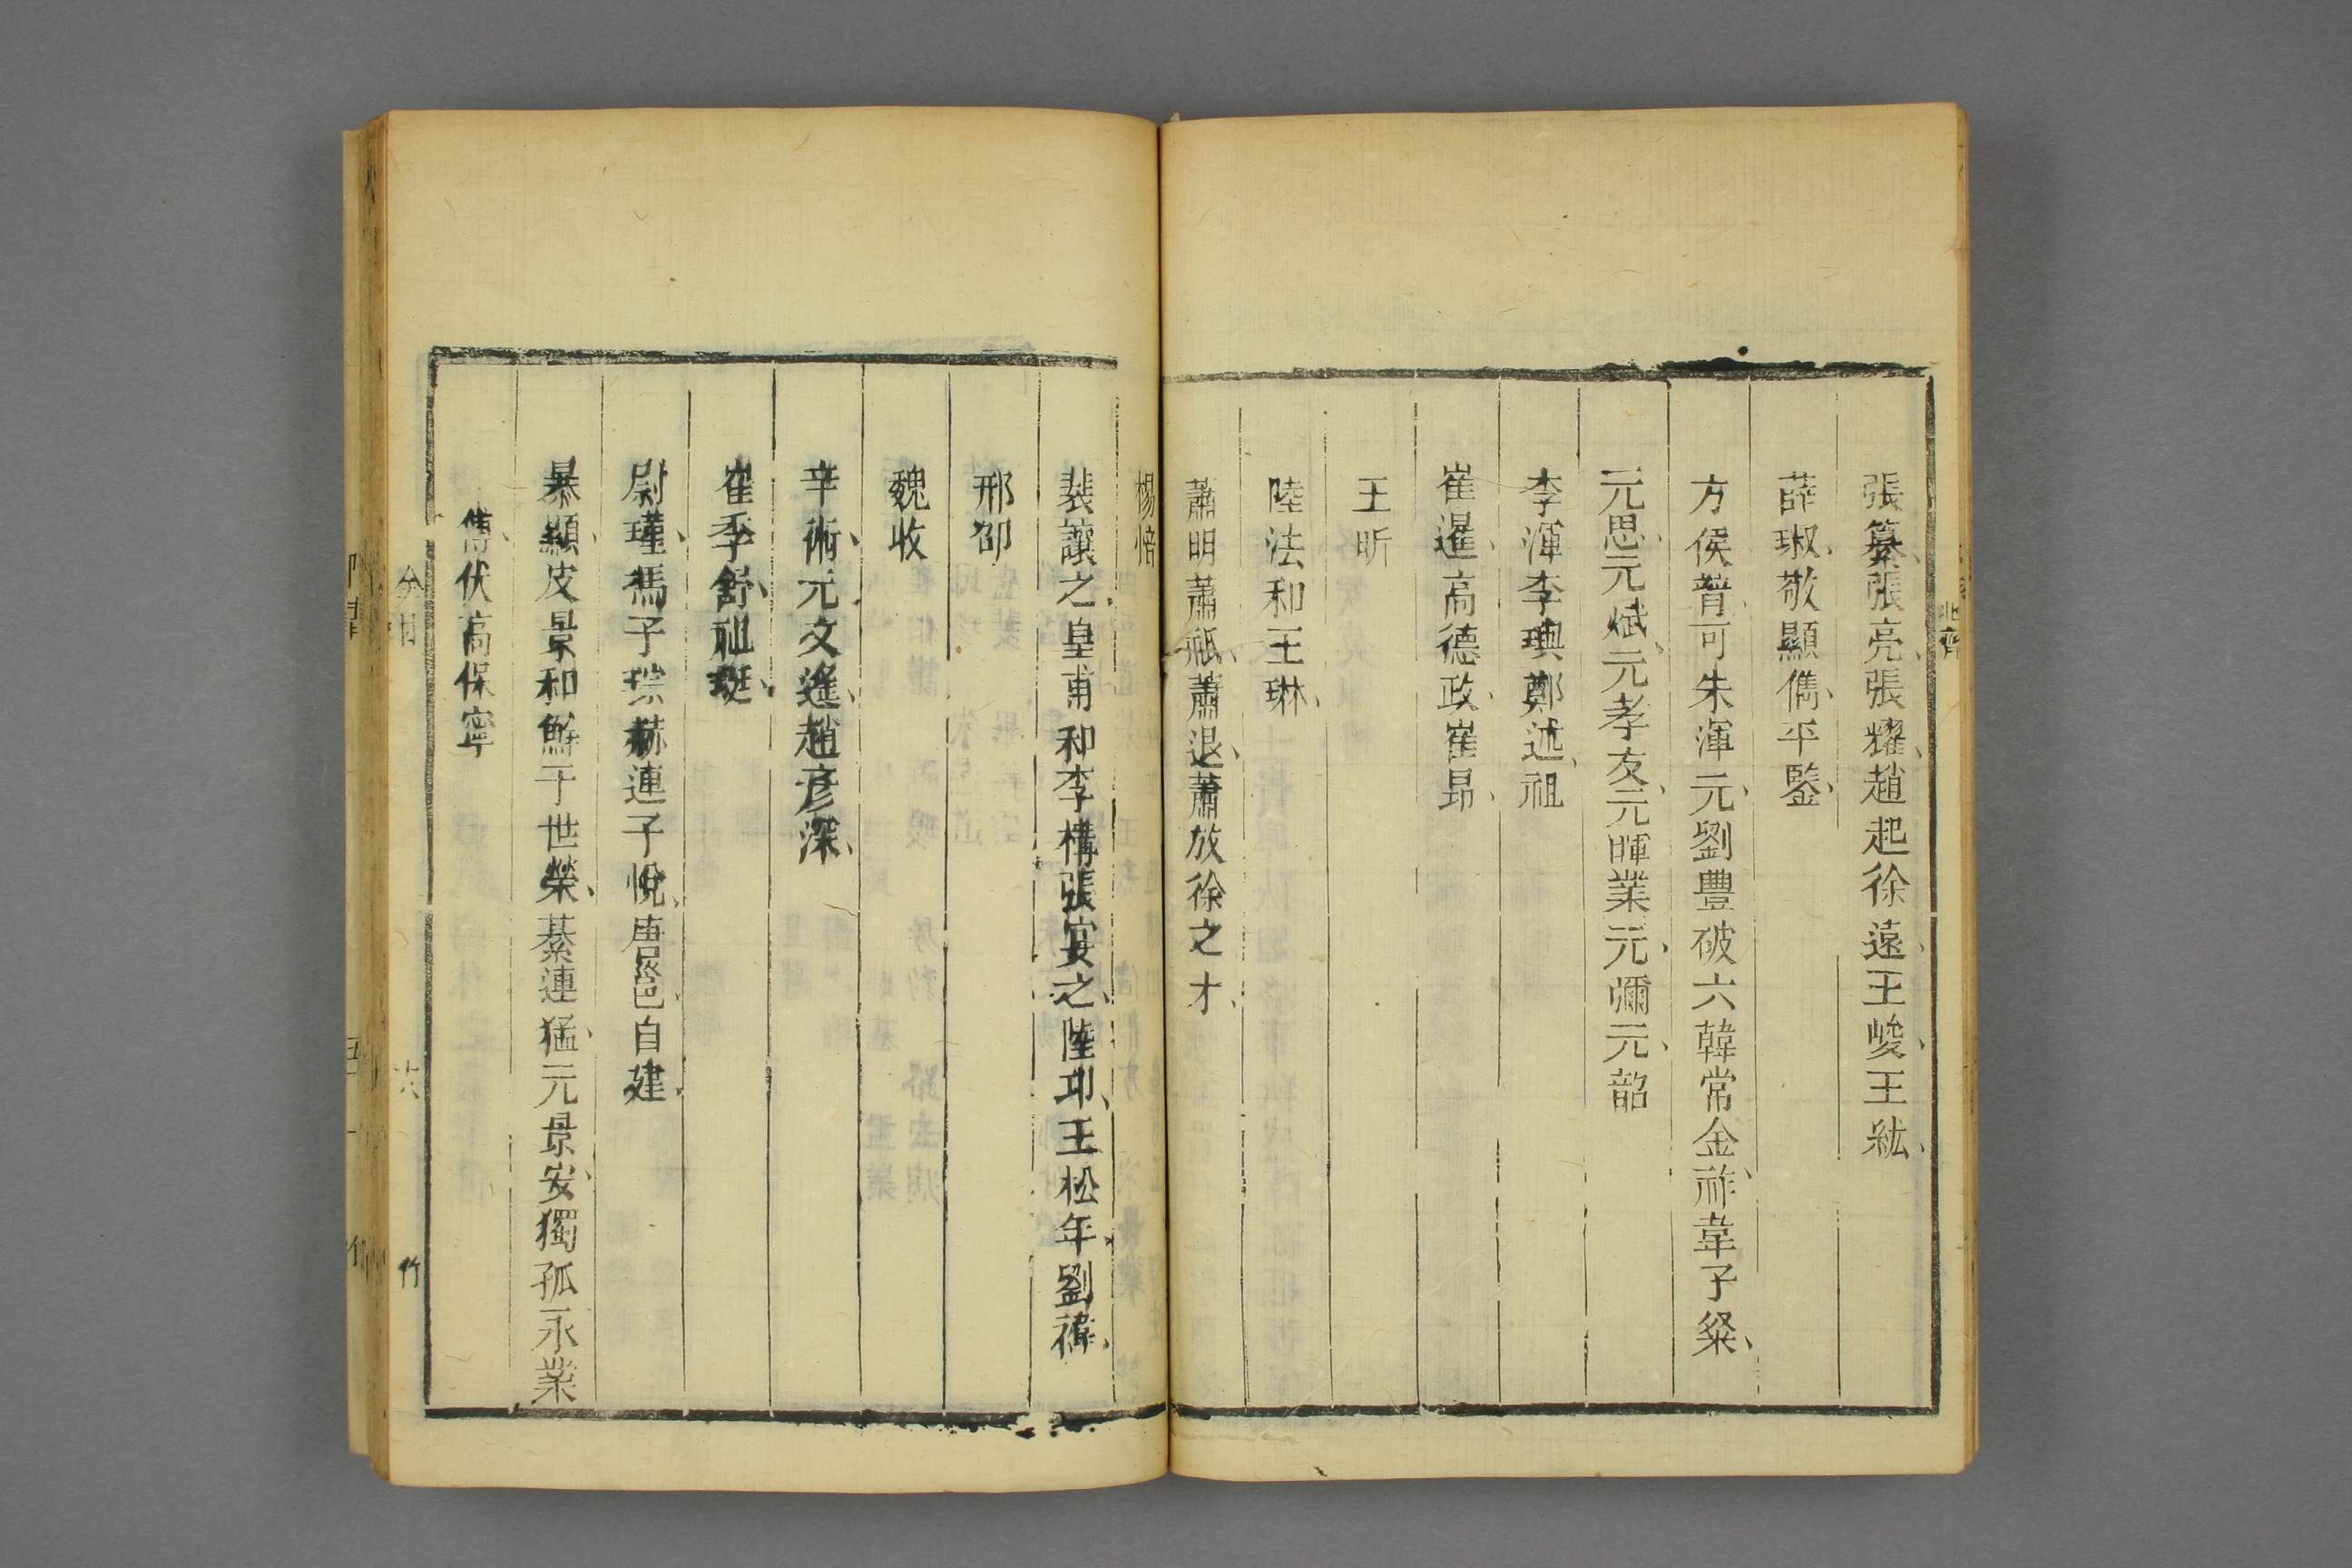 張纂張亮張耀趙起徐遠王峻王紘
薛琡敬顯儁平鑒
万俟普可朱渾元劉豐破六韓常金祚韋子粲
元思元斌元孝友元暉業元彌元韶
李渾李璵鄭述祖
崔暹高德政崔昂
王昕
陸法和王琳
蕭明蕭祗蕭退蕭放徐之才
楊愔
裴讓之皇甫和李構張宴之陸卭王松年劉禕
邢卲
魏收
辛術元文遙趙彥深
崔季舒祖珽
尉瑾馮子琮赫連子悅唐邕白建
暴顯皮景和鮮于世榮綦連猛元景安獨孤永業
傅伏高保寧
北齊
六
竹